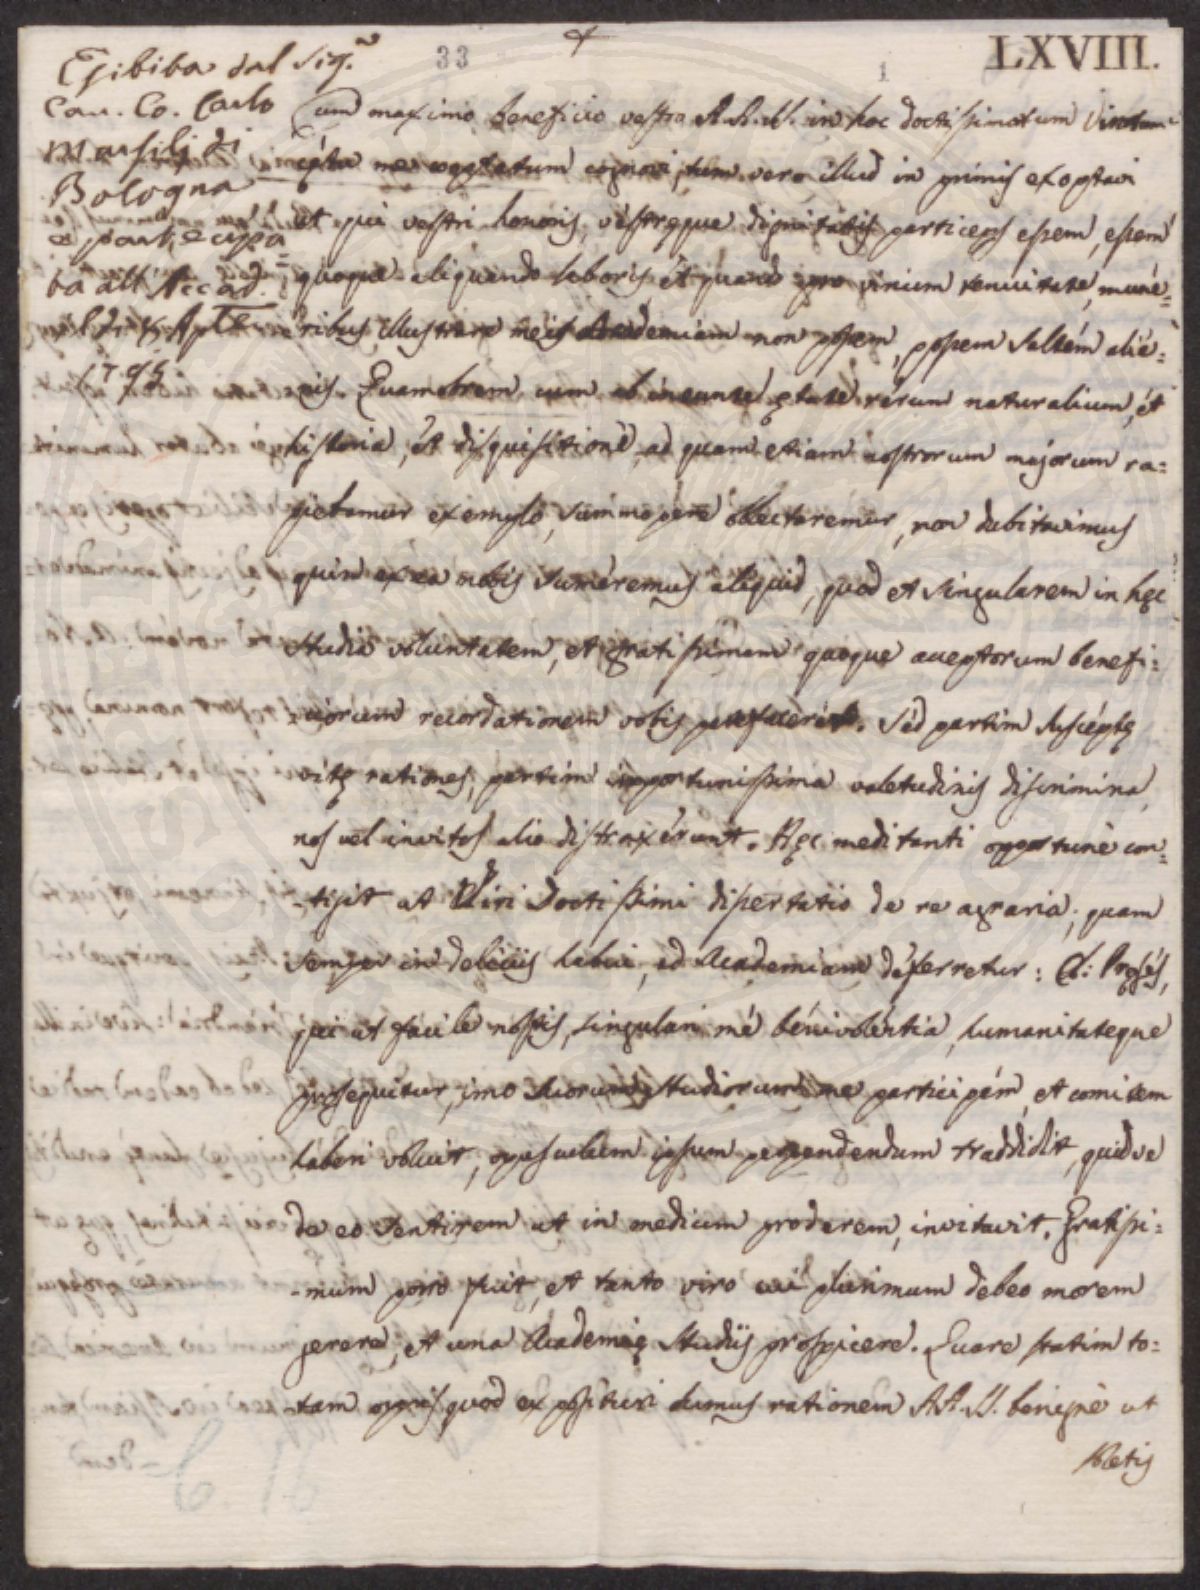 33
LXVIII.
1
Esibiba dal Sig.r
Cav. Co. Carlo
Marsilj di
Bologna
e partecipa
ba all'Accad.
li 24 Aple
1795
Cum maximo beneficio vestro A. A. V. in hoc doctissimorum Virorum
cętu me cooptatum cognovi, tum vero illud in primis exoptavi
ut qui vestri honoris, vestręque dignitatis particeps essem, essem
quoque aliquando laboris et quando pro virium tenuitate, mune=
ribus illustrare meis Academiam non possem, possem saltem alie=
nis. Quamobrem cum ab ineunte ętate rerum naturalium, et
historia, et disquisitione, ad quam etiam nostrorum majorum ra=
piebamur exemplo, summopere oblectaremur, non dubitavimus
quin ex ea nobis sumeremus aliquid, quod et singularem in hęc
studia voluntatem, et gratissimam quoque acceptorum benefi=
ciorum recordationem vobis patefaceret. Sed partim susceptę
vitę rationes, partim importunissima valetudinis discrimina,
nos vel invitos alio distraxerunt. Hęc meditanti opportunè con=
-tigit ut Viri Doctissimi dissertatio de re agraria, quam
semper in deliciis habui, ad Academiam deferretur: Cl: Pręses,
qui ut facile nostis, singulari me benivolentia, humanitateque
prosequitur, imo suorum studiorum me participem, et comitem
haberi voluit, opusculum ipsum perpendendum traddidit, quidve
de eo sentirem ut in medium proderem, invitavit. Gratissi=
-mum porro fuit, et tanto viro cui plurimum debeo morem
gerere, et una Academię studiis prospicere. Quare statim to=
-tam operis quod exposituri sumus rationem AA. VV. benignè ut
soletis